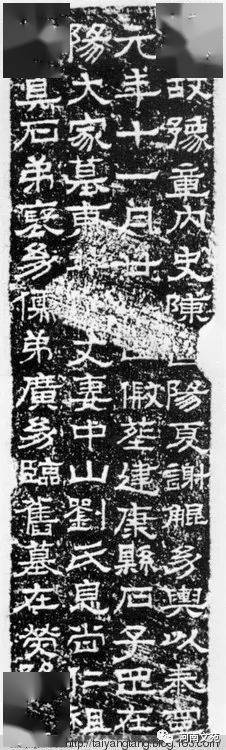 故豫章內史陳陽夏謝鯤幼輿以泰寧
元年十一月廿假葬建康縣石子罡在
陽大家墓東丈妻中山劉氏息尚仁祖
真石弟裒幼儒弟廣幼臨舊墓在熒陽
http://taiyangtang.blog.163.com